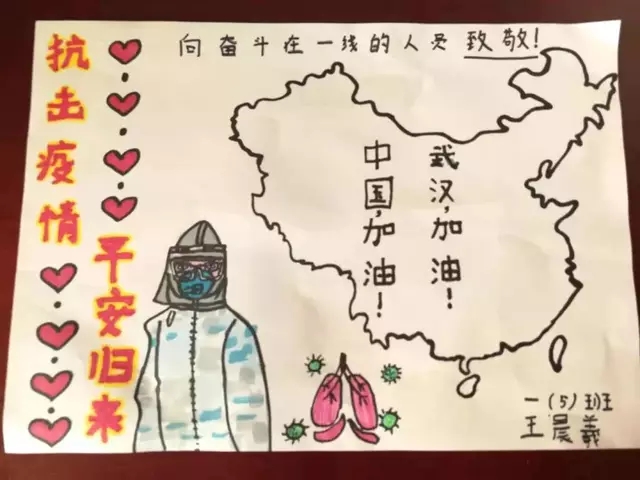 向奋斗在一线的人员致敬!
抗击疫情
平安归来
武汉,加油!
中国,加油!
一(5)班
王晨羲